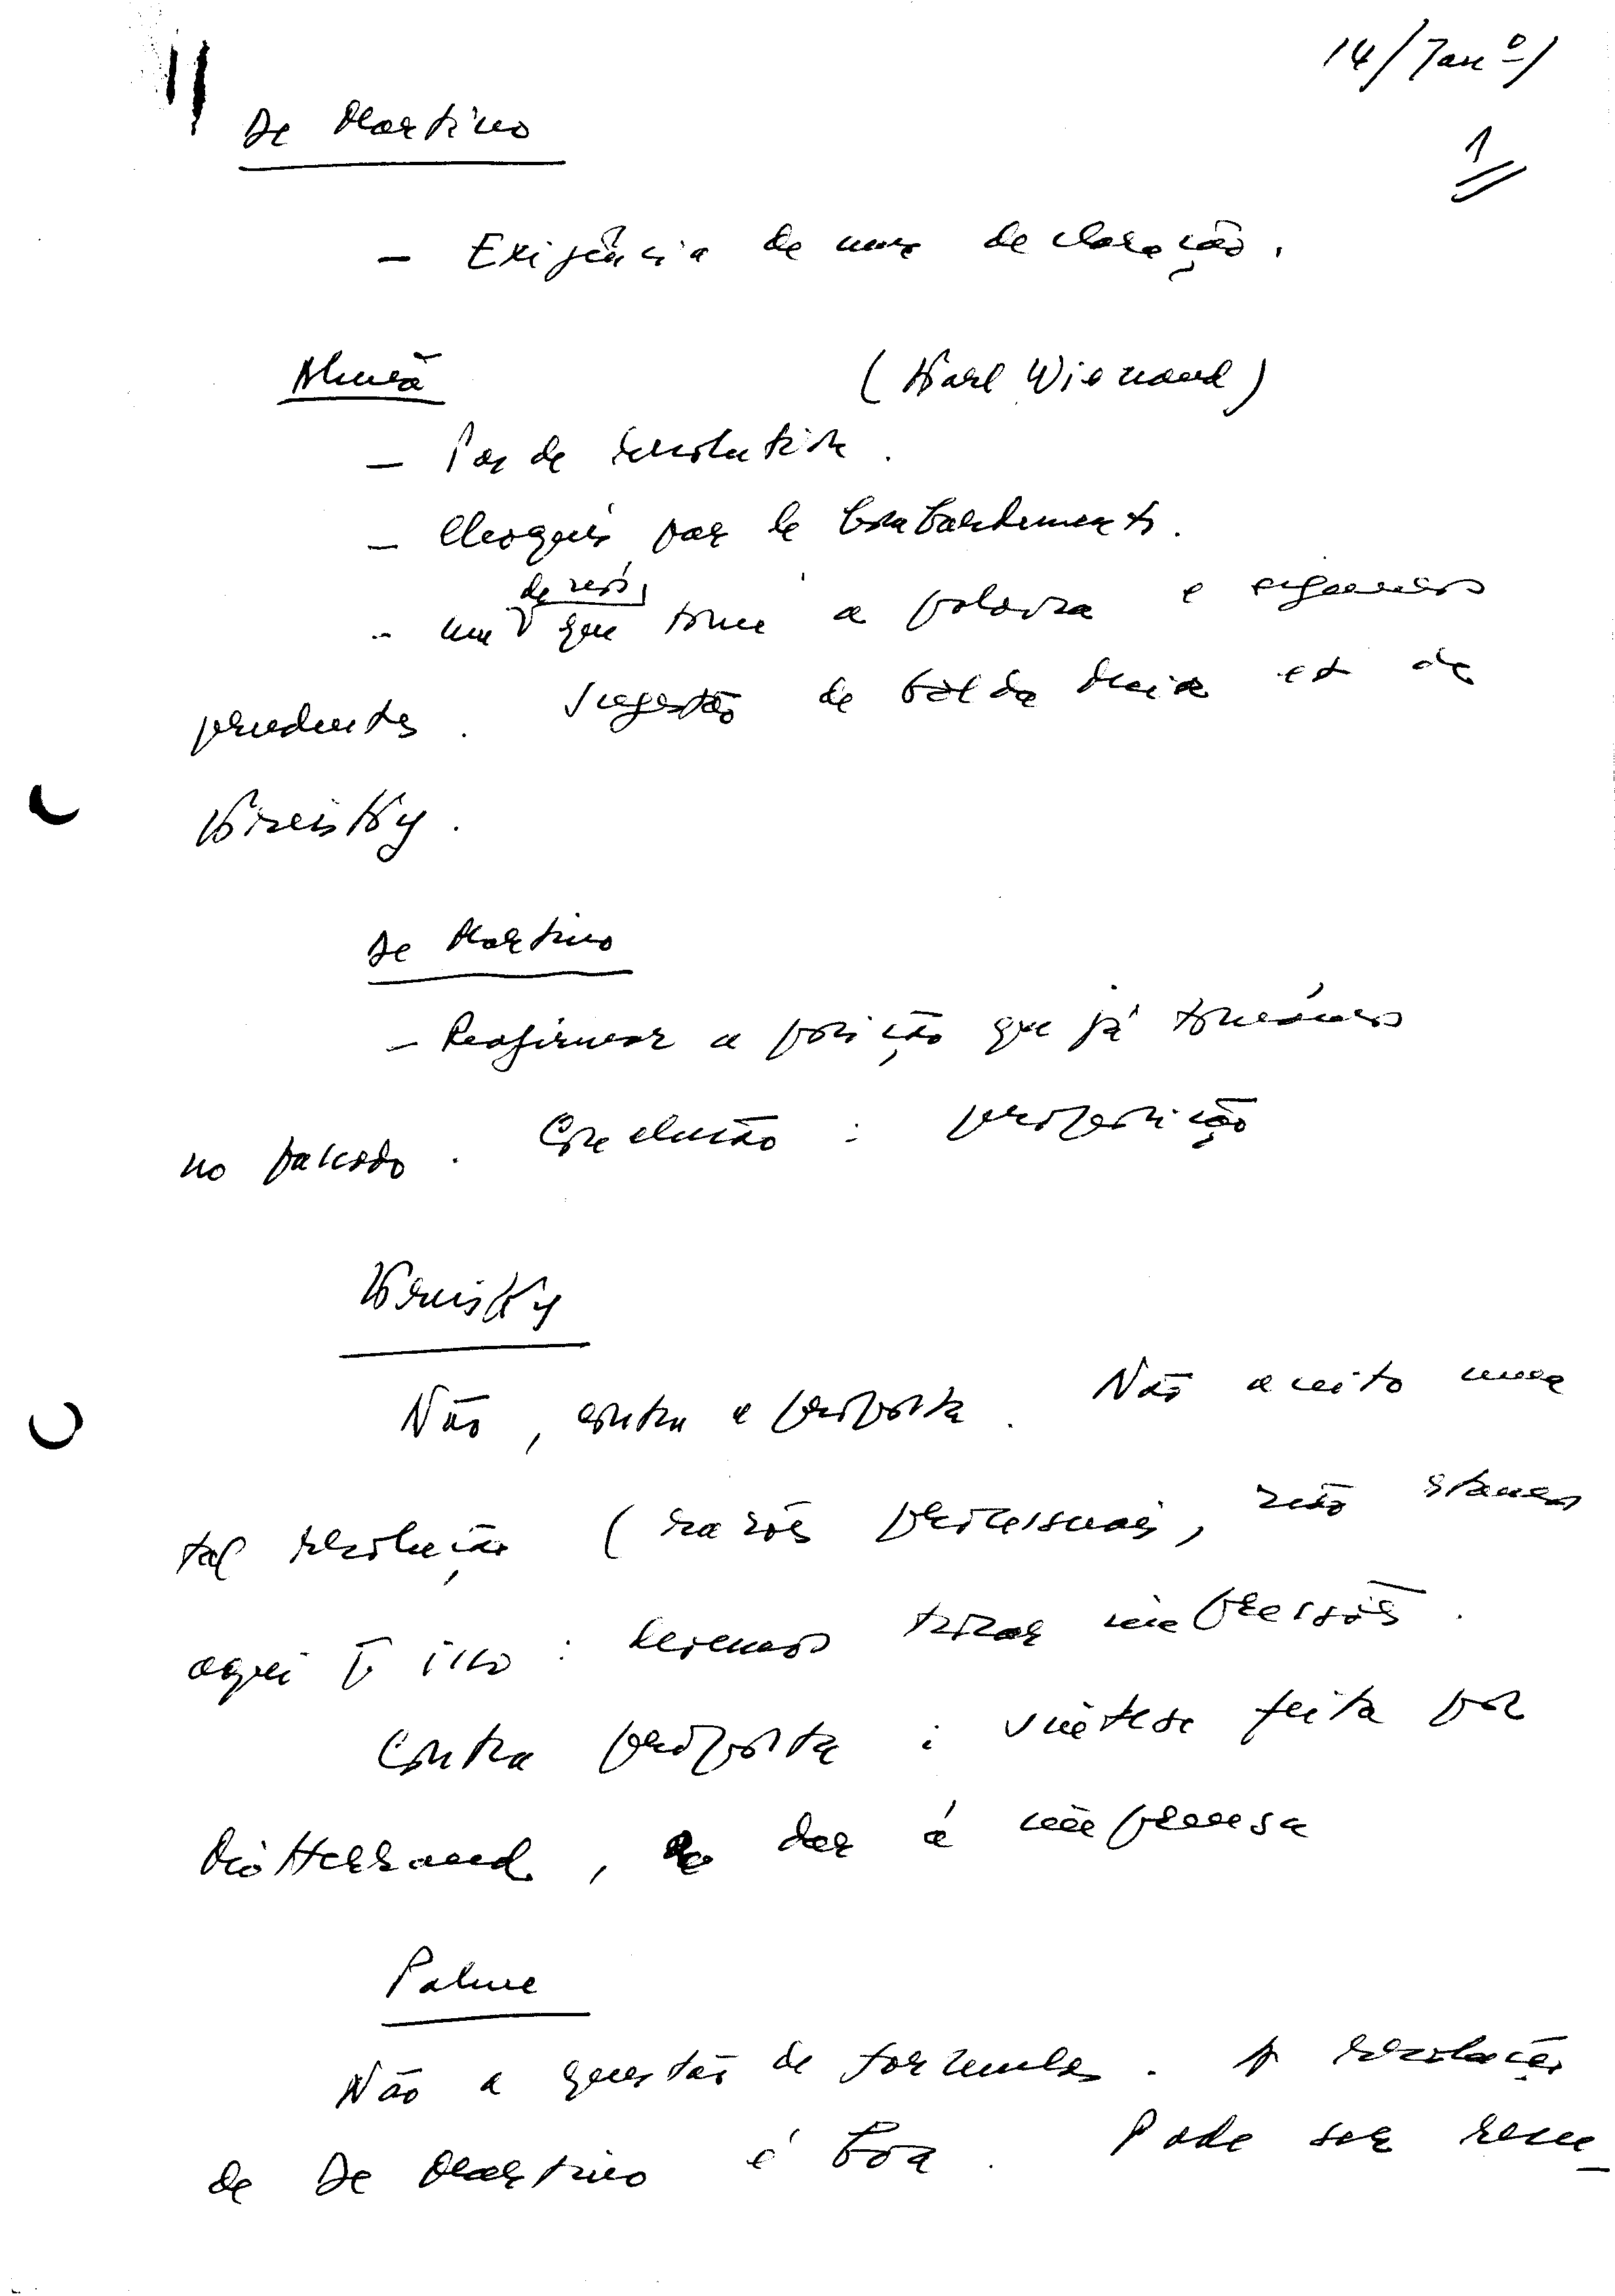 14/Janº/
1
De Martino
- Exigência de uma declaração.
Alemã (Karl Wienand)
- Pas de résolution.
- Choqués par le bombardement.
de nós
- um que tome a palavra e sejamos
prudentes. Sugestão de Golda Meir et de
Kreisky.
De Martino
- Reafirmar a posição que já tomámos
no passado. Conclusão: proposição
Kreisky
Não, contra a proposta. Não aceito uma
tal resolução (razões processuais, não stamos
aqui p. isso: deixemos trocar impressões.
Contra proposta: síntese feita por
Mitterrand, dar á imprensa
Palme
Não a questão de formulas. A resolução
de De Martino é boa. Pode ser resu-